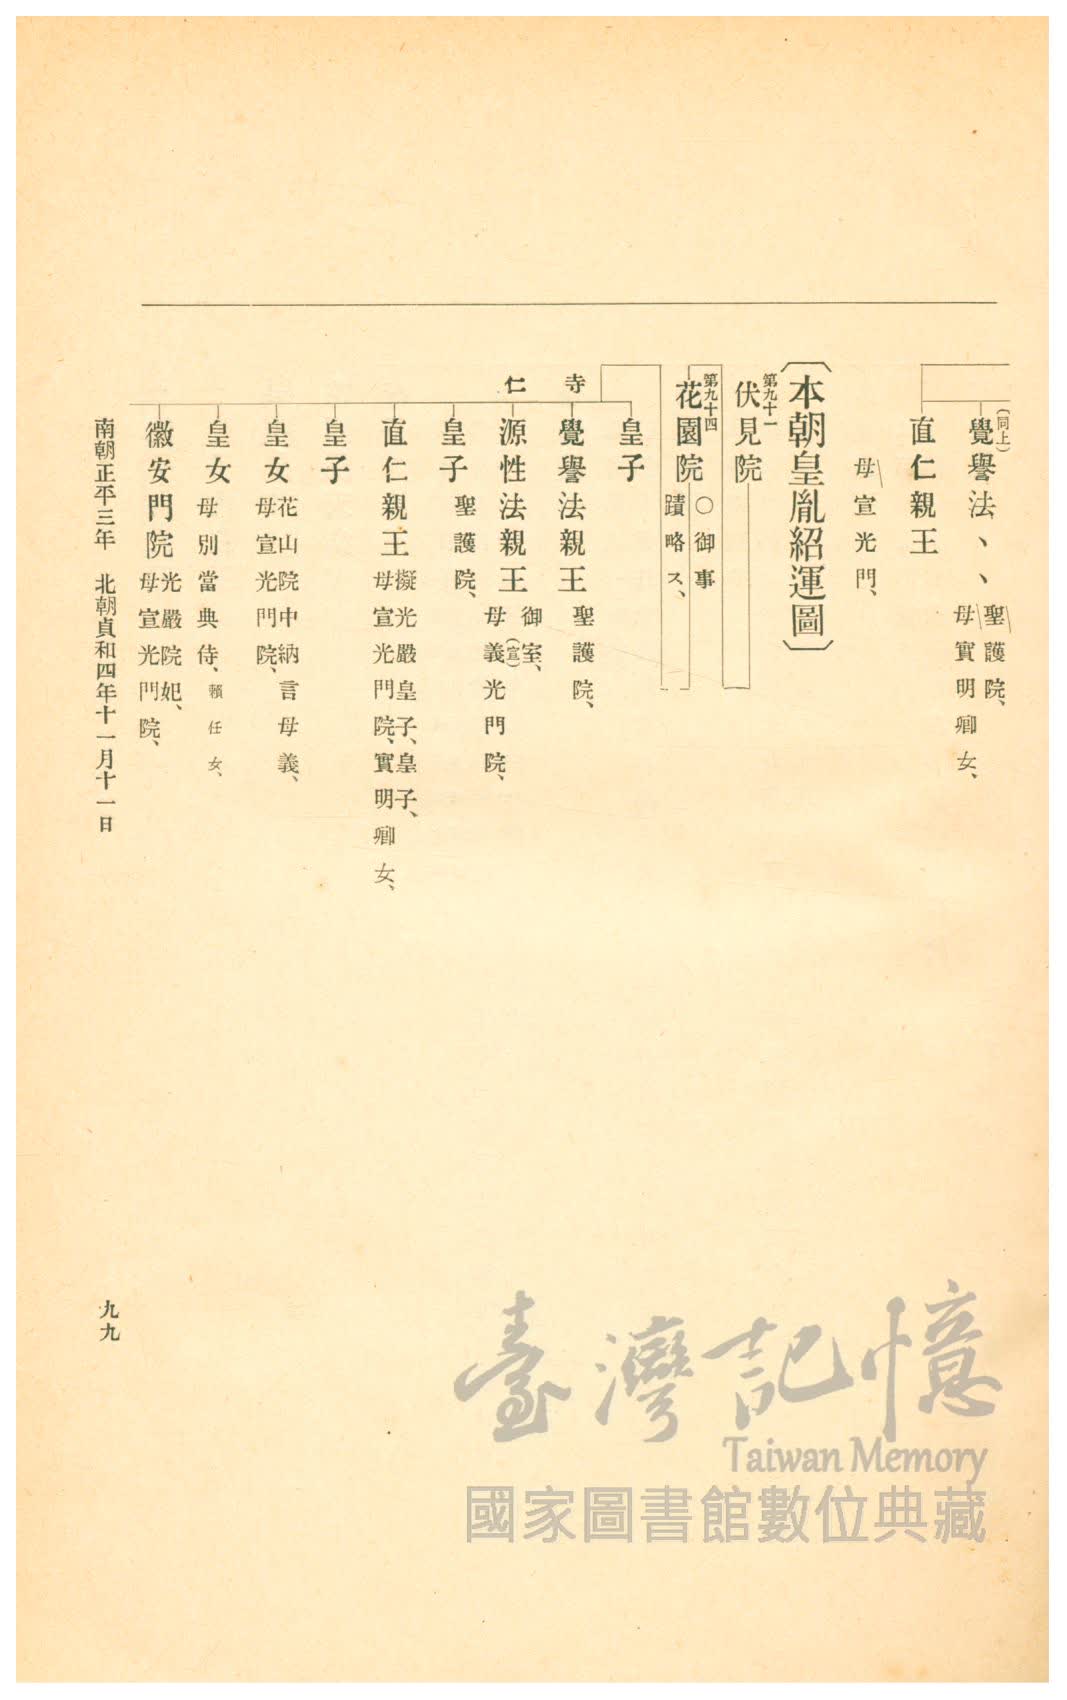 (同上)
覺譽法、、
聖護院、
母實明卿女、
直仁親王
母宣光門、
〔本朝皇胤紹運圖〕
第九十一
伏見院
第九十四
花園院
〇御事
蹟略ス、
皇子
寺
覺譽法親王
聖護院、
仁
源性法親王
御室、
母義(宣)光門院、
皇子
聖護院、
直仁親王
擬光嚴皇子、皇子、
母宣光門院、實明卿女、
皇子
皇女
花山院中納言母義、
母宣光門院、
皇女
母別當典侍、賴任女、
徽安門院
光嚴院妃、
母宣光門院、
南朝正平三年 北朝貞和四年十一月十一日
九九
臺灣記憶
Taiwan Memory
國家圖書館數位典藏